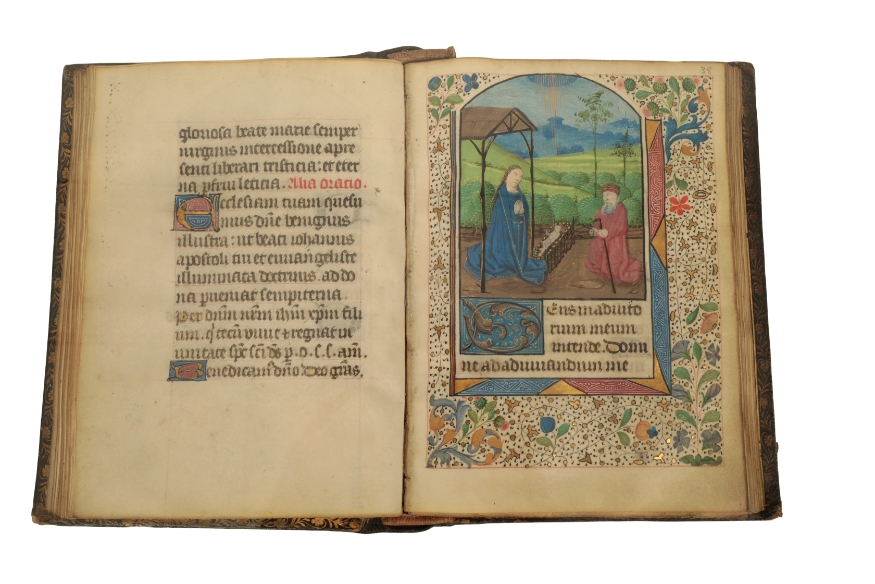 gloriosa beate marie semper
uirginis intercessione a pre
senti liberari tristicia: et eter
na pfrui leticia. Alia oracio.
Ecclesiam tuam quesu
mus dñe benignus
illustra: ut beati iohannis
apostoli tui et euuangeliste
illuminata doctrinis. ad do
na pueniat sempiterna.
Per dnm nrm ihm xpm fili
um. q tecū viuit et regnat in
unitate sps sci ds p. o. s. s. am.
Benedicam dño. Deo gras.
38
Deus in adiuto
rium meum
intende. Domi
ne ad adiuuandum me